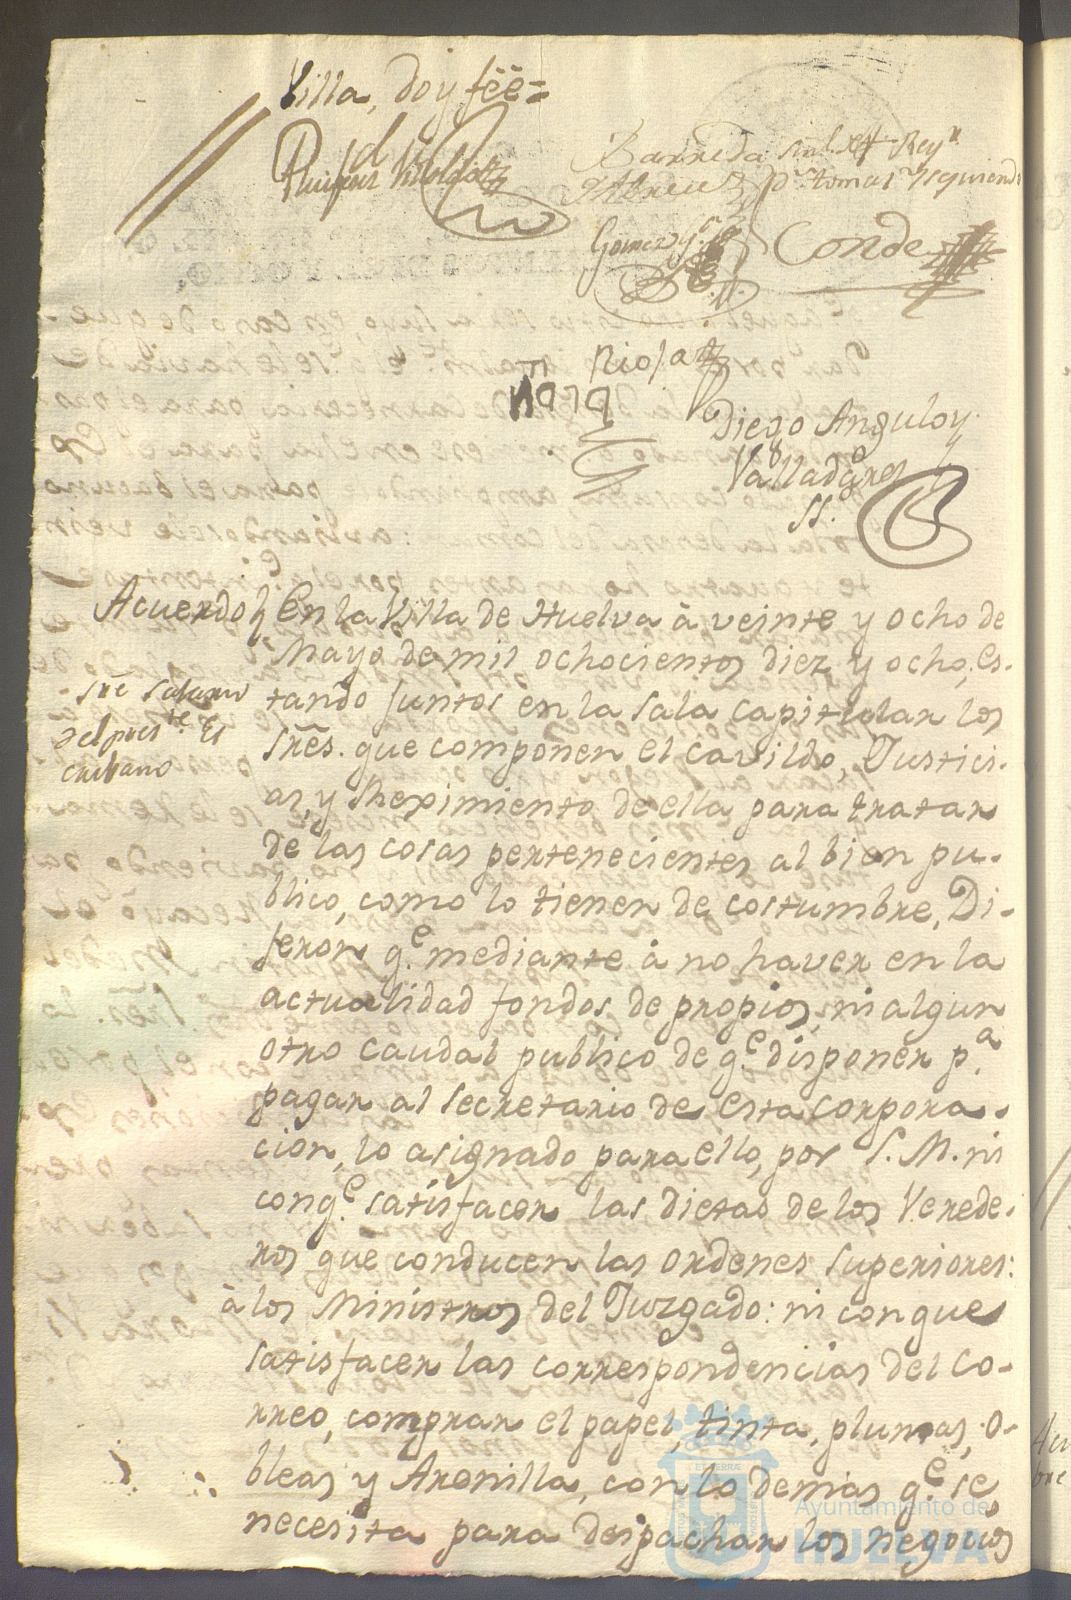 Villa, doy feè=
Barreda
Gomez y
Conde
Riofa
Mora
Diego Angulo y
Valladares
SS.
Acuerdo
En la Villa de Huelva à veinte y ocho de
Mayo de mil ochocientos diez y ocho, es-
tando juntos en la sala capitular los
Sres. que componen el cavildo, Justici-
as, y Reximiento de ella para tratar
de las cosas pertenecientes al bien pu-
blico, como lo tienen de costumbre, Di-
jeron qe. mediante à no haver en la
actualidad fondos de propios, ni algun
otro caudal publico de qe. disponer pa.
pagar al secretario de esta corpora-
cion, lo asignado para ello, por S. M. ni
con qe. satisfacer las dietas de los Verede-
ros que conducen las ordenes superiores:
à los Ministros del Juzgado: ni con que
satisfacer las correspondencias del Co-
rreo, comprar el papel, tinta, plumas, o-
bleas y Arenilla, con lo demas qe. se
necesita para despachar los negocios
Sre salario
del preste. Es
cribano
Ayuntamiento de
HUELVA